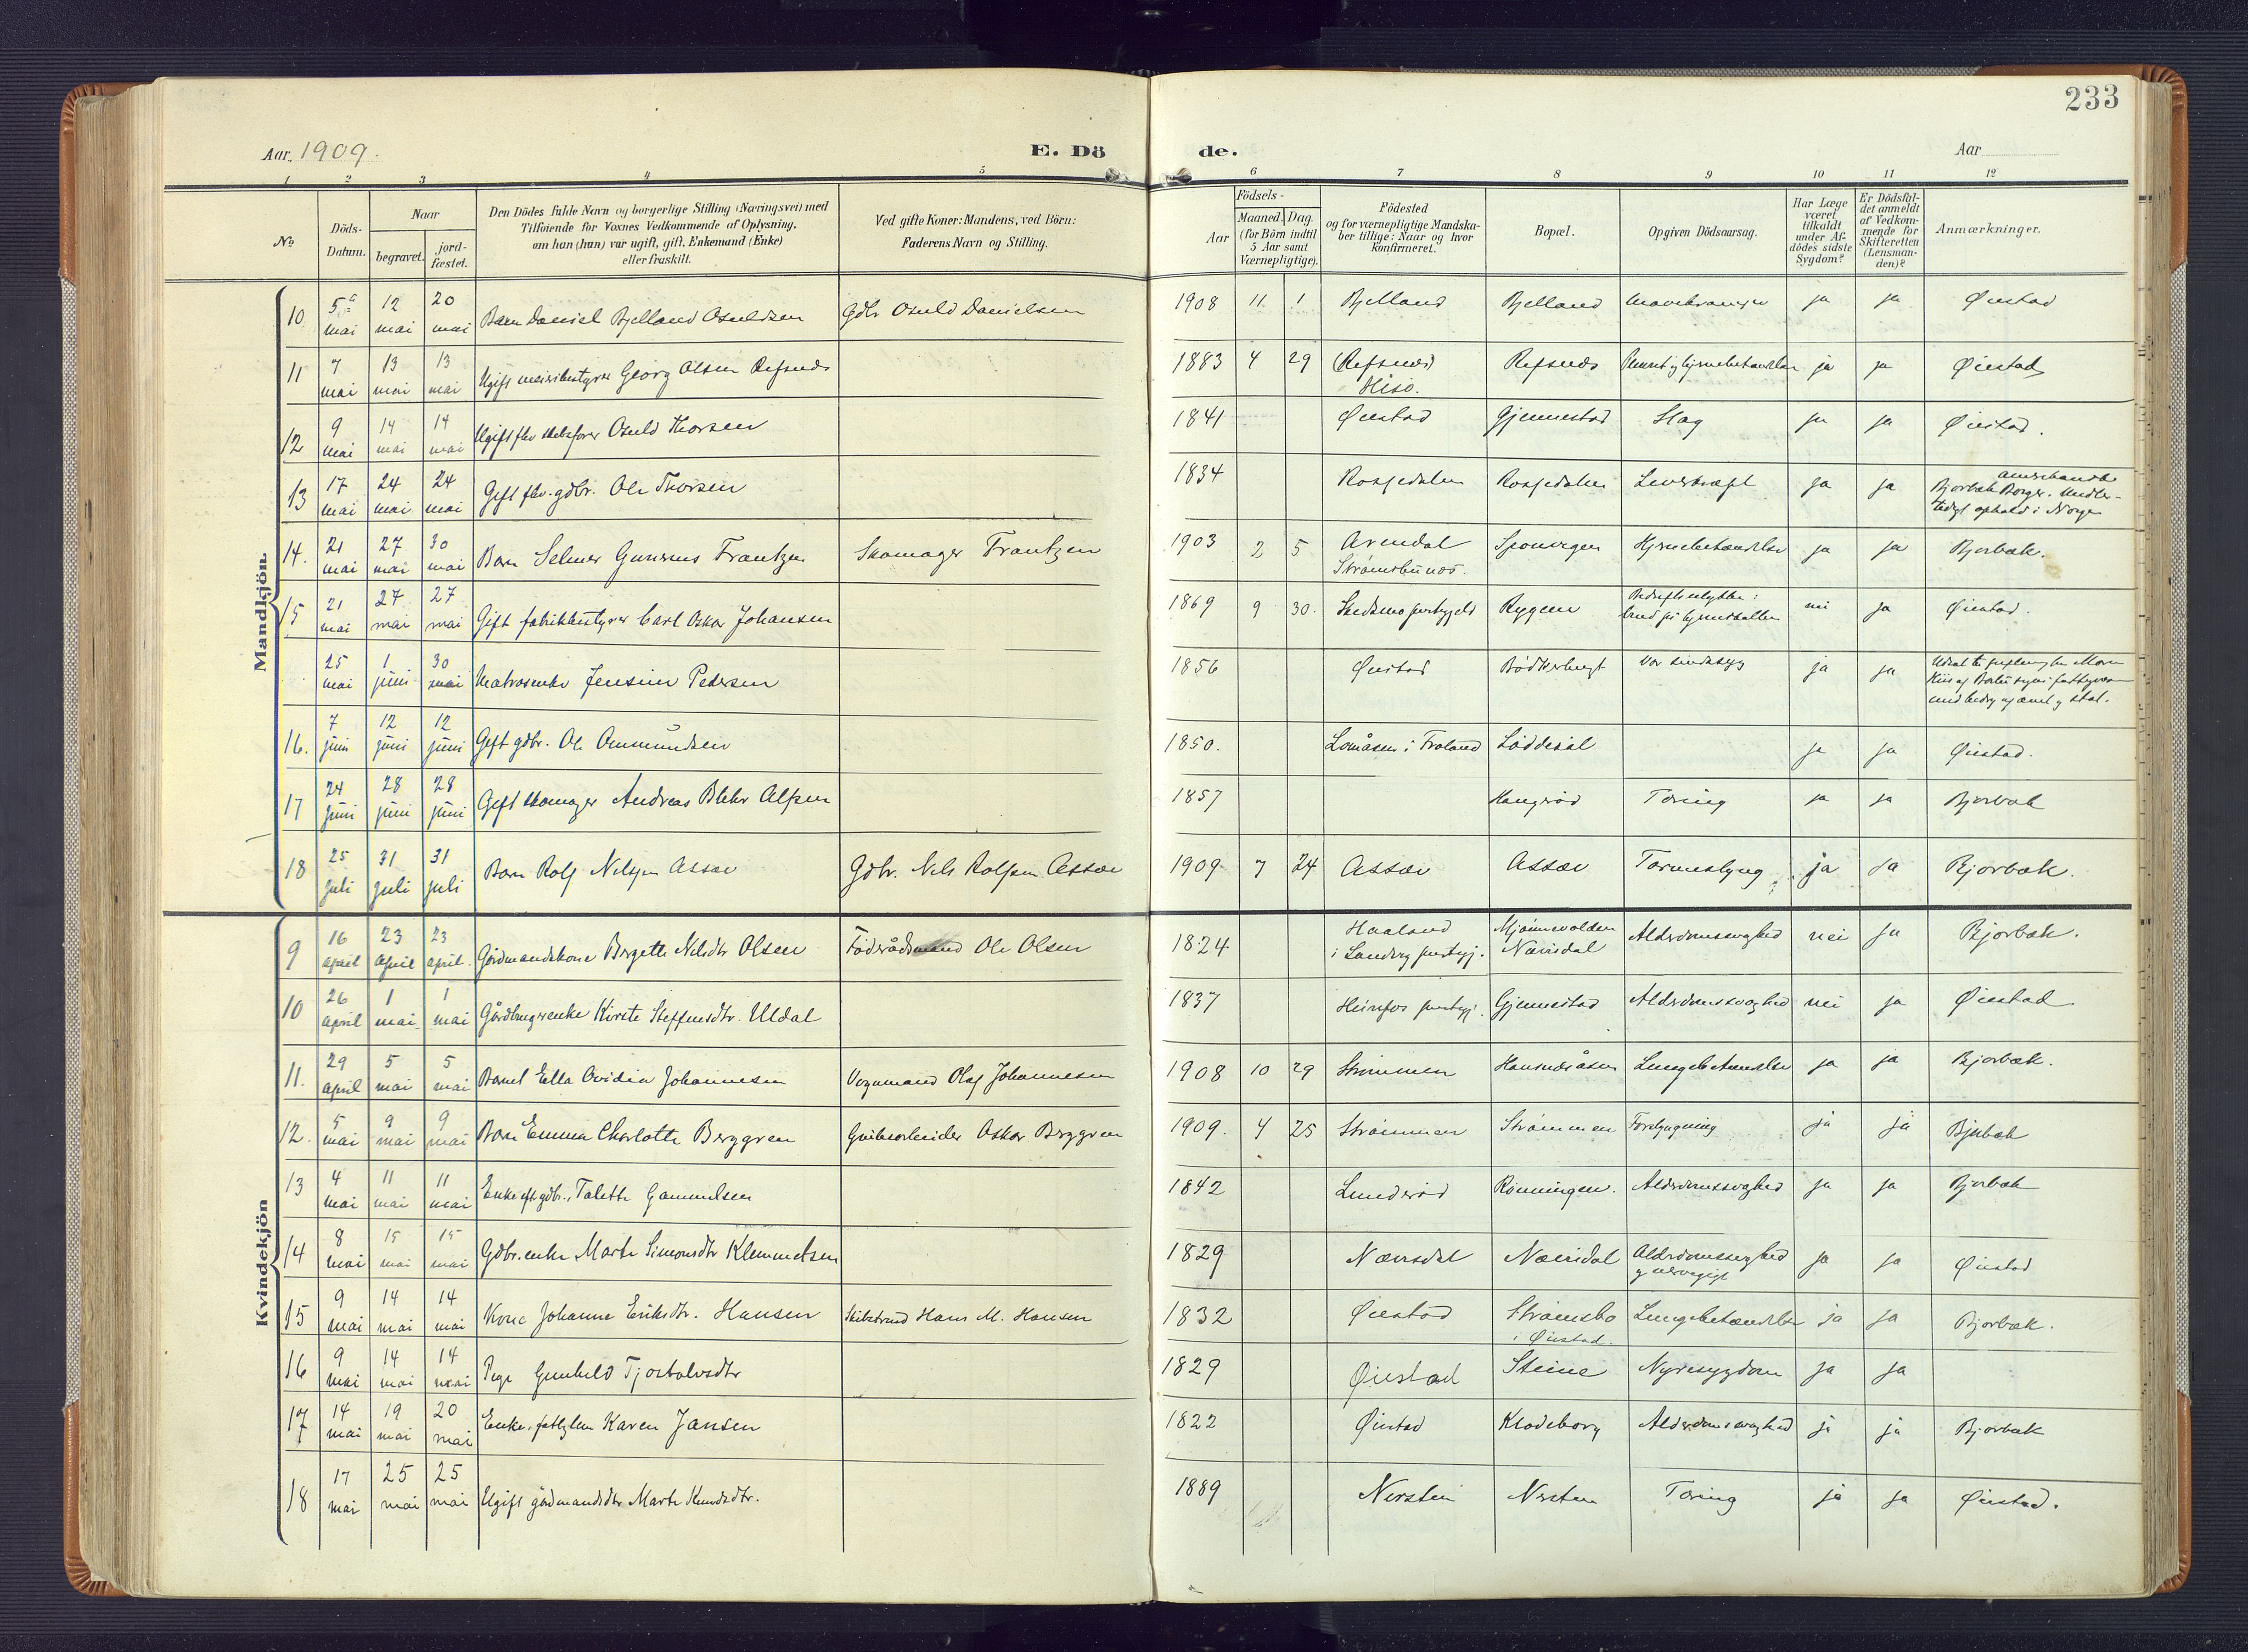 233
Aar 1909. E. Dö de. Aar
1 2 3 4 5 6 7 8 9 10 11 12
№ Döds-Datum. Naar begravet. jordfæstet. Den Dödes fulde Navn og borgerlige Stilling (Næringsvei) med Tilföiende for Voxnes Vedkommende af Oplysning, om han (hun) var ugift, gift, Enkemand (Enke) eller fraskilt. Ved gifte Koner: Mandens, ved Börn: Faderens Navn og Stilling. Födsels- Aar Maaned. Dag. (for Börn indtil 5 Aar samt Værnepligtige). Födested og for værnepligtige Mandskaber tillige: Naar og hvor konfirmeret. Bopæl. Opgiven Dödsaarsag. Har Læge været tilkaldt under Afdödes sidste Sygdom? Er Dödsfaldet anmeldt af Vedkommende for Skifteretten (Lensmanden)? Anmærkninger.
Mandkjön.
10 5 mai 12 mai 20 mai Barn Daniel Bjelland Osuldsen Gdbr Osuld Danielsen 1908 11 1 Bjelland Bjelland ja ja Øiestad
11 7 mai 13 mai 13 mai Ugift meieribestyrer Georg Olsen Refsnes 1883 4 29 (Refsnes) Hisö. Refsnes ja ja Øiestad
12 9 mai 14 mai 14 mai Ugift fhv skibsfører Osuld Thorsen 1841 Øiestad Gjennestad Slag ja ja Øiestad.
13 17 mai 24 mai 24 mai Gift fhv. gdbr. Ole Thorsen 1834 Rossedalen Rossedalen ja ja amerikansk Borger. ophold i Norge Bjorbæk
14. 21 mai 27 mai 30 mai Barn Selmer Gunerius Frantzen Skomager Frantzen 1903 2 5 Arendal Strømsbunos. Hjernebetændelse ja ja Bjorbæk.
15 21 mai 27 mai 27 mai Gift fabrikbestyrer Carl Oskar Johansen 1869 9 30. Skedsmo prestgjeld Rygene Bedriftsulykke: brud på hjerneskallen nei ja Øiestad.
25 mai 1 juni 30 mai Matrosenke Jensine Pedersen 1856 Øiestad Var sindssyg ja ja
16. 7 juni 12 juni 12 juni Gift gdbr. Ole Ommundsen 1850. Lomåsen i Froland Løddesøl ja ja Øiestad.
17 24 juni 28 juni 28 juni Gift skomager Andreas Alfsen 1857 Haugerød Tæring ja ja Bjorbæk
18 25 juli 31 juli 31 juli Barn Rolf Nilssen Assæv Gdbr. Nils Rolfsen Assæv 1909 7 24 Assæv Assæv Tarmeslyng ja ja Bjorbæk.
Kvindekjön
9 16 april 23 april 23 april. Gårdmandskone Bergette Nilsdtr Olsen Føderådsmand Ole Olsen 1824 Haaland i Landvig prestgj. Mjønnevolden Nævisdal Alderdomssvaghed nei ja Bjorbæk.
10 26 april 1 mai 1 mai Gårdbrugerenke Kirste Steffensdtr. Uldal 1837 prestgj. Gjennestad Alderdomssvaghed nei ja Øiestad
11. 29 april 5 mai 5 mai Barnet Ella Ovidia Johannesen Vognmand Olaf Johannesen 1908 10 29 Strømmen Hansnesåsen Lungebetændelse ja ja Bjorbæk.
12. 5 mai 9 mai 9 mai Barn Emma Charlotte Berggren Grubearbeider Oskar Berggren 1909. 4 25 Strømmen Strømmen ja ja Bjorbæk
13 4 mai 11 mai 11 mai Enke eft gdbr., Talette Gammelsen 1842 Lunderød Rønningen. Alderdomssvaghed ja ja Bjorbæk
14 8 mai 15 mai 15 mai Gdbr.enke Marte Simonsdtr Klemmetsen 1829 Nævisdal Nævisdal Alderdomssvaghed ja ja Øiestad
15 9 mai 14 mai 14 mai Kone Johanne Eriksdtr. Hansen Skibstmd Hans M. Hansen 1832 Øiestad Strømsbo i Øiestad. Lungebetændelse ja ja Bjorbæk.
16 9 mai 14 mai 14 mai Pige Gunhild Tjostolvsdtr 1829 Øiestad Steine Nyresygdom ja ja
17 14 mai 19 mai 20 mai Enke, fattiglem Karen Jansen 1822 Øiestad Klodeborg Alderdomssvaghed ja ja Bjorbæk
18 17 mai 25 mai 25 mai Ugift gårdmandsdtr Marte Knudsdtr. 1889 Nersten Nersten Tæring ja ja Øiestad.